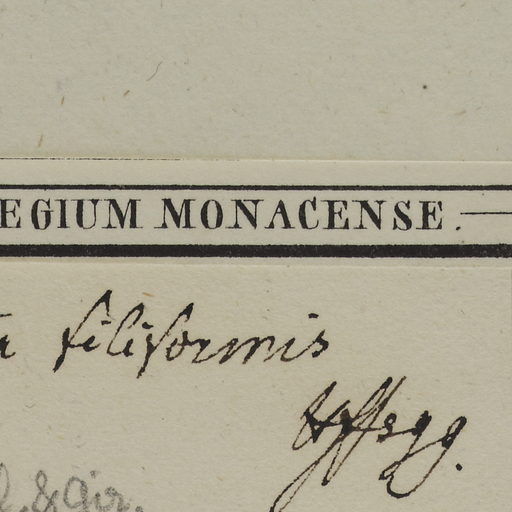 EGIUM MONACENSE.
a filiformis
Hffsgg.
& Gir.